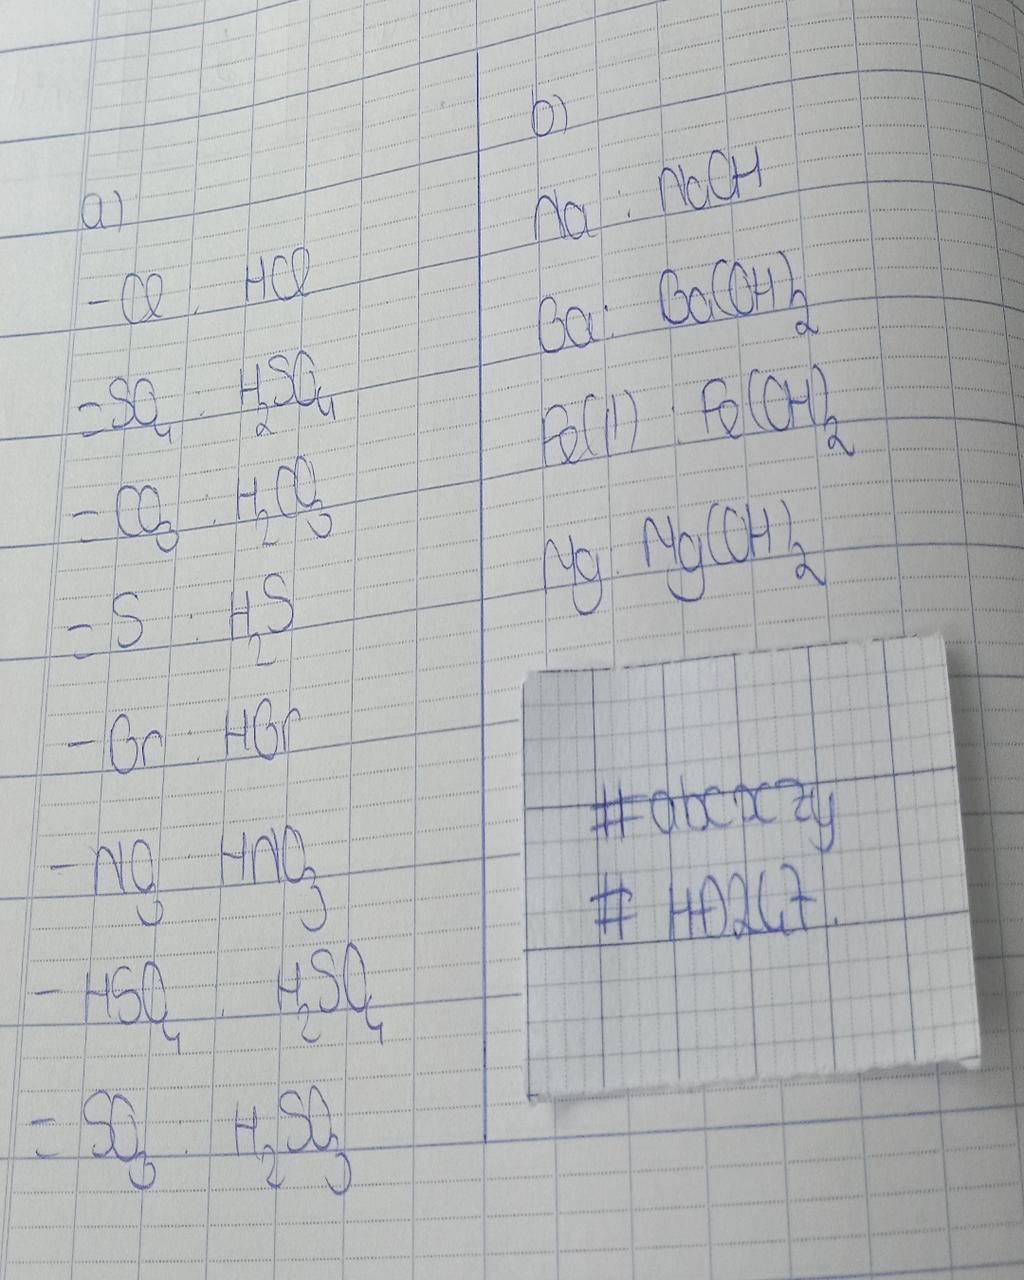 a)
- Cl : HCl
= SO₄ : H₂SO₄
= CO₃ : H₂CO₃
= S : H₂S
- Br : HBr
- NO₃ HNO₃
- HSO₄ : H₂SO₄
= SO₃ : H₂SO₃
b)
Na : NaOH
Ba : Ba(OH)₂
Fe(II) : Fe(OH)₂
Mg : Mg(OH)₂
#abcxzy